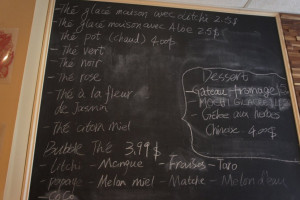 -Thé glacé maison avec matcha 2.5$
-Thé glacé maison avec Aloe 2.5$
Thé pot (chaud) 4.00$
- Thé vert
- Thé noir
- Thé rose
- Thé à la fleur
de Jasmin
- Thé citron miel
Bubble Thé 3.99$
- Litchi - Mangue - Fraises - Taro
- papaye - Melon miel - Matcha - Melon d'eau
Dessert
- Gateau fromage
- Gelée aux herbes
Chinoise 4.00$